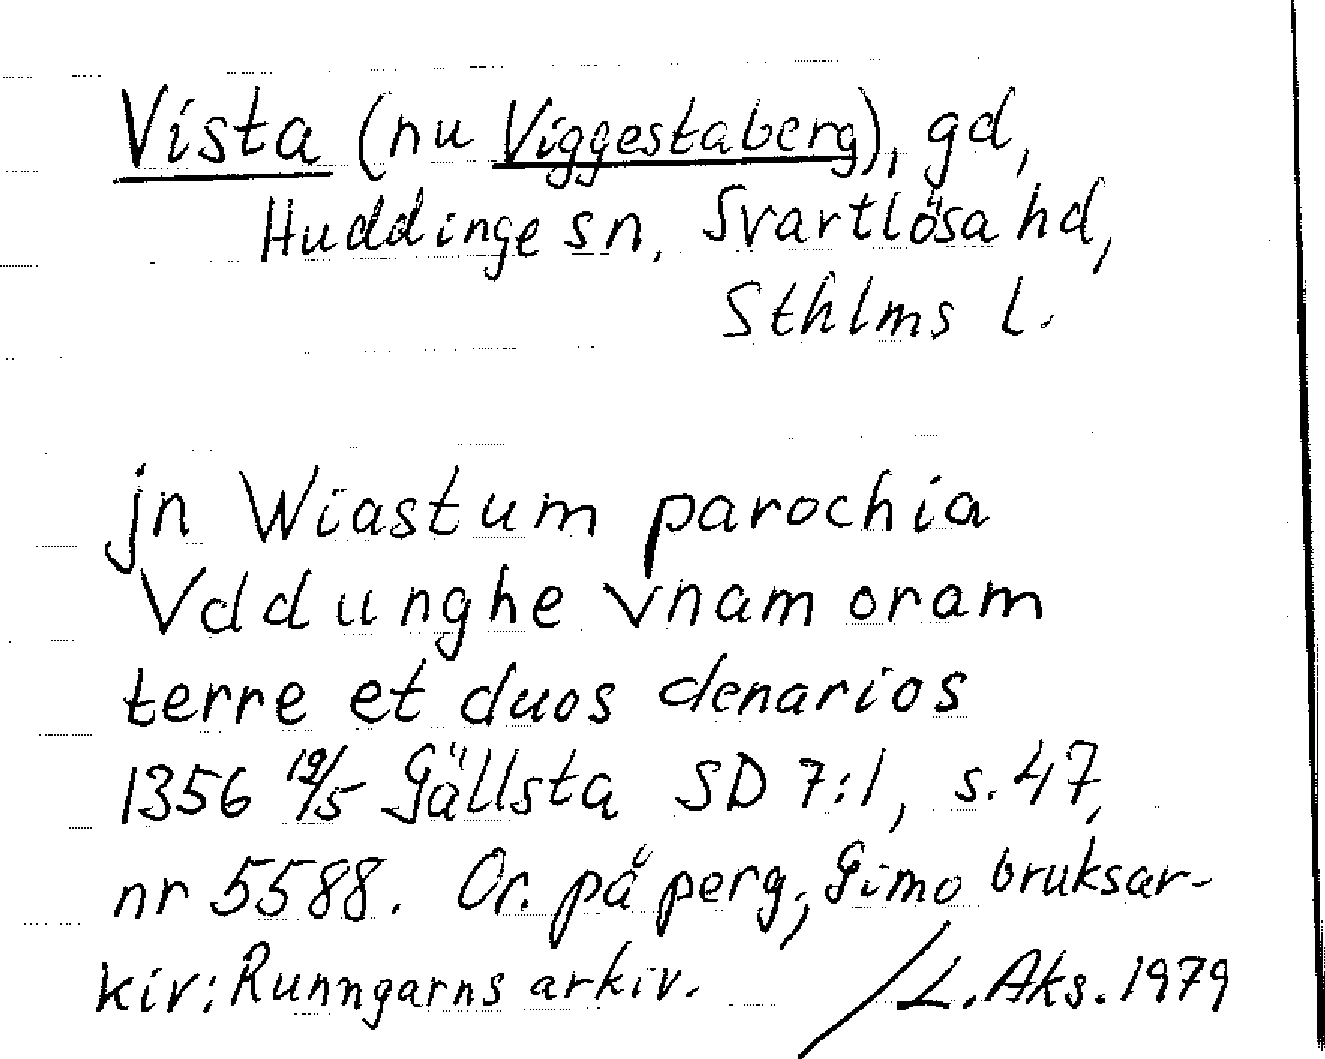 Vista (nu Viggestaberg), gd,
Huddinge sn, Svartlösa hd,
Sthlms l.
jn Wiastum parochia
Vddunghe vnam oram
terre et duos denarios
1356 19/5 Gällsta SD 7:1, s. 47,
nr 5588. Or. på perg, Gimo bruksar-
kiv: Runngarns arkiv. / L. Aks. 1979